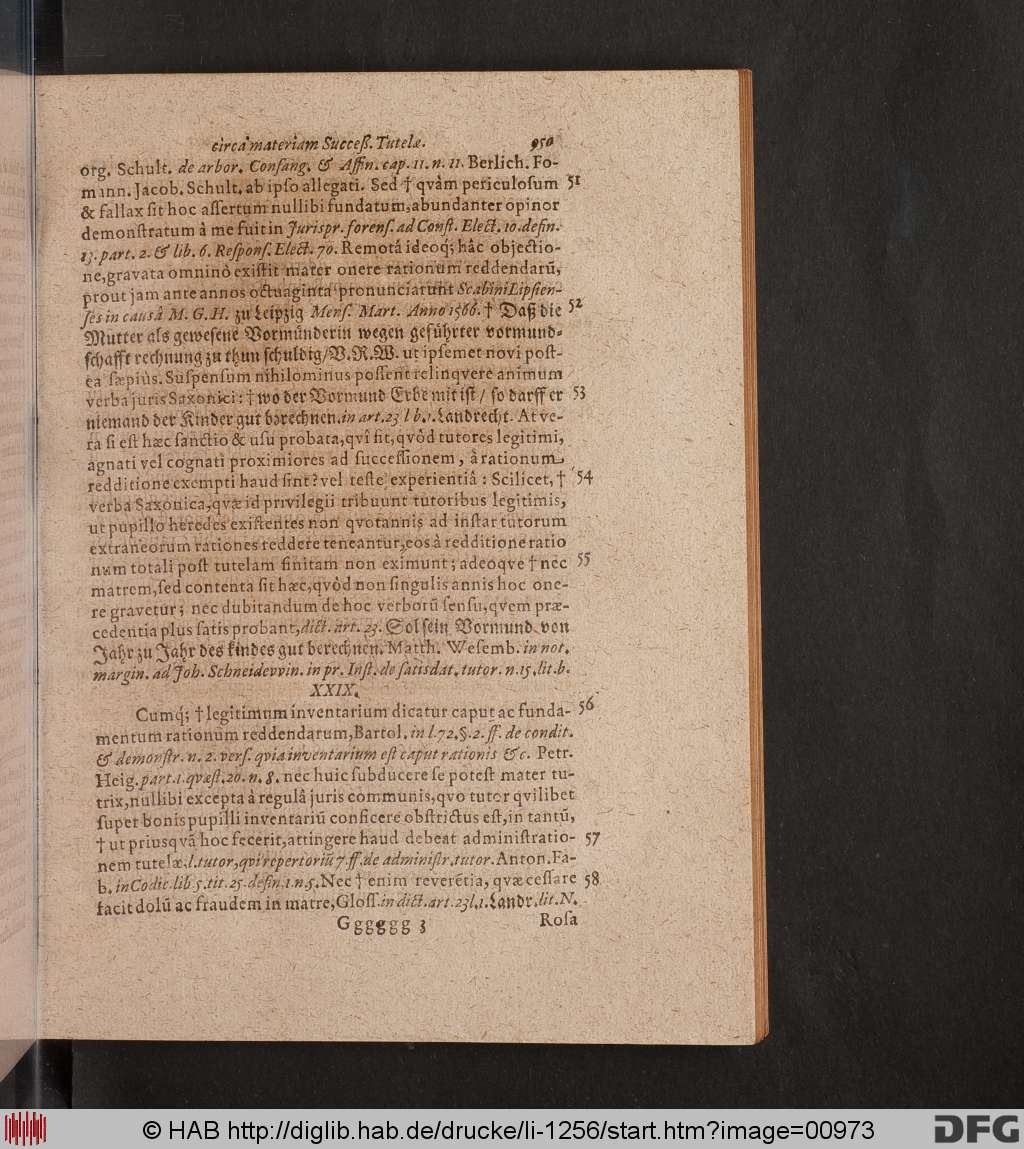 circa materiam Succeß. Tutelæ. 950
org. Schult. de arbor. Consang. & Affin. cap. 11. n. 11. Berlich. Fo-
mann. Jacob. Schult. ab ipso allegati. Sed † qvàm periculosum 51
& fallax sit hoc assertum nullibi fundatum, abundanter opinor
demonstratum à me fuit in Jurispr. forens. ad Const. Elect. 10. defin.
13. part. 2. & lib. 6. Respons. Elect. 70. Remotâ ideoq; hâc objectio-
ne, gravata omninò existit mater onere rationum reddendarũ,
prout jam ante annos octuaginta pronunciarunt Scabini Lipsien-
ses in causâ M. G. H. zu Leipzig Mens. Mart. Anno 1566. † Daß die 52
Mutter als gewesene Vormünderin wegen geführter vormund-
schafft rechnung zu thun schuldig / V. R. W. ut ipsemet novi post-
ea sæpiùs. Suspensum nihilominus possent relinqvere animum
verba juris Saxonici: † wo der Vormund Erbe mit ist / so darff er 53
niemand der Kinder gut berechnen. in art. 23 l b. 1. Landrecht. At ve-
ra si est hæc sanctio & usu probata, qvî fit, qvòd tutores legitimi,
agnati vel cognati proximiores ad successionem, à rationum
redditione exempti haud sint? vel teste experientiâ: Scilicet, † 54
verba Saxonica, qvæ id privilegii tribuunt tutoribus legitimis,
ut pupillo heredes existentes non qvotannis ad instar tutorum
extraneorum rationes reddere teneantur, eos à redditione ratio
num totali post tutelam finitam non eximunt; adeoqve † nec 55
matrem, sed contenta sit hæc, qvòd non singulis annis hoc one-
re gravetur; nec dubitandum de hoc verborũ sensu, qvem præ-
cedentia plus satis probant, dict. art. 23. Sol sein Vormund von
Jahr zu Jahr des kindes gut berechnen. Matth. Wesemb. in not.
margin. ad Joh. Schneidevvin. in pr. Inst. de satisdat. tutor. n. 15. lit. b.
XXIX.
Cumq; † legitimum inventarium dicatur caput ac funda- 56
mentum rationum reddendarum, Bartol. in l. 72. §. 2. ff. de condit.
& demonstr. n. 2. vers. qvia inventarium est caput rationis &c. Petr.
Heig. part. 1. qvæst. 20. n. 8. nec huic subducere se potest mater tu-
trix, nullibi excepta à regulâ juris communis, qvo tutor qvilibet
super bonis pupilli inventariũ conficere obstrictus est, in tantũ,
† ut priusqvã hoc fecerit, attingere haud debeat administratio- 57
nem tutelæ, l. tutor, qvi repertoriũ 7. ff. de administr. tutor. Anton. Fa-
b. in Codic. lib. 5. tit. 25. defin. 1. n. 5. Nec † enim reverẽtia, qvæ cessare 58
facit dolũ ac fraudem in matre, Gloss. in dict. art. 23 l. 1. Landr. lit. N.
Gggggg 3 Rosa
© HAB http://diglib.hab.de/drucke/li-1256/start.htm?image=00973
DFG